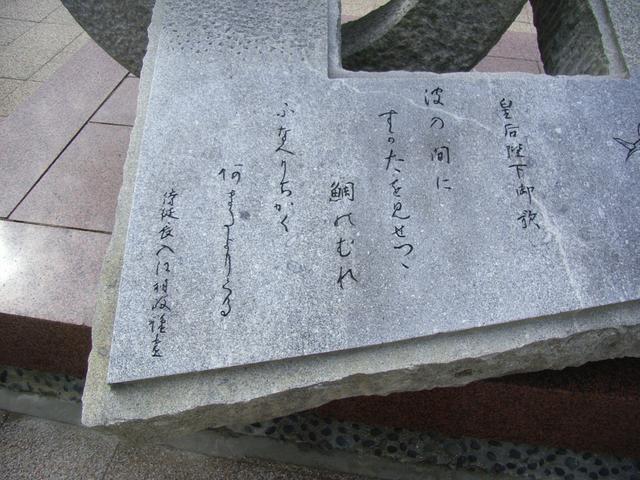 皇后陛下御歌
波の間に
すかたを見せつゝ
鯛のむれ
ふなへりちかく
阿またよりくる
侍従長入江相政謹書